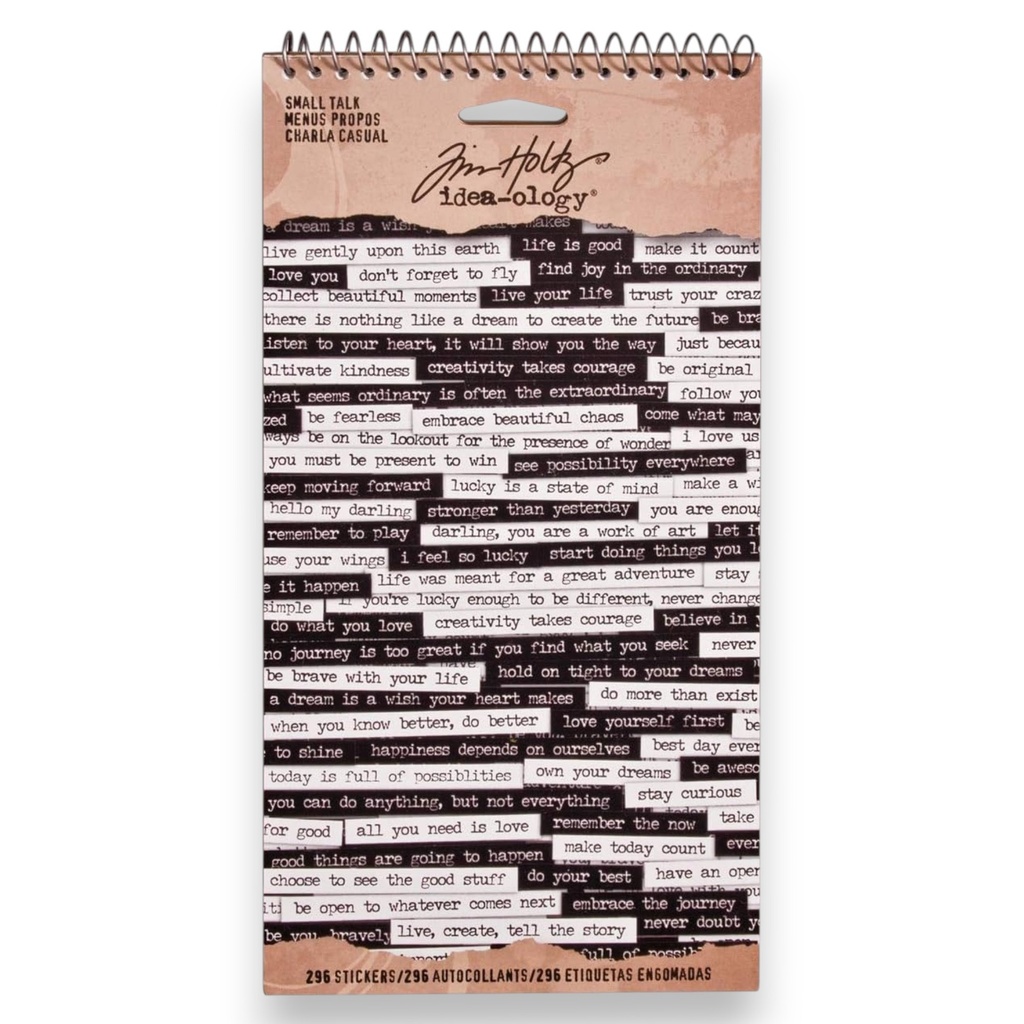 SMALL TALK
MENUS PROPOS
CHARLA CASUAL
Tim Holtz®
idea-ology®
a dream is a wish makes
live gently upon this earth life is good make it count
love you don't forget to fly find joy in the ordinary
collect beautiful moments live your life trust your craz
there is nothing like a dream to create the future be bra
isten to your heart, it will show you the way just becau
ultivate kindness creativity takes courage be original
what seems ordinary is often the extraordinary follow you
zed be fearless embrace beautiful chaos come what may
ways be on the lookout for the presence of wonder i love us
you must be present to win see possibility everywhere
keep moving forward lucky is a state of mind make a wi
hello my darling stronger than yesterday you are enoug
remember to play darling, you are a work of art let it
use your wings i feel so lucky start doing things you l
e it happen life was meant for a great adventure stay
simple if you're lucky enough to be different, never change
do what you love creativity takes courage believe in y
no journey is too great if you find what you seek never
be brave with your life hold on tight to your dreams
a dream is a wish your heart makes do more than exist
when you know better, do better love yourself first be
to shine happiness depends on ourselves best day ever
today is full of possiblities own your dreams be aweso
you can do anything, but not everything stay curious
for good all you need is love remember the now take
good things are going to happen make today count ever
choose to see the good stuff do your best have an open
be open to whatever comes next embrace the journey
be you bravely live, create, tell the story never doubt y
full of possib
296 STICKERS/296 AUTOCOLLANTS/296 ETIQUETAS ENGOMADAS